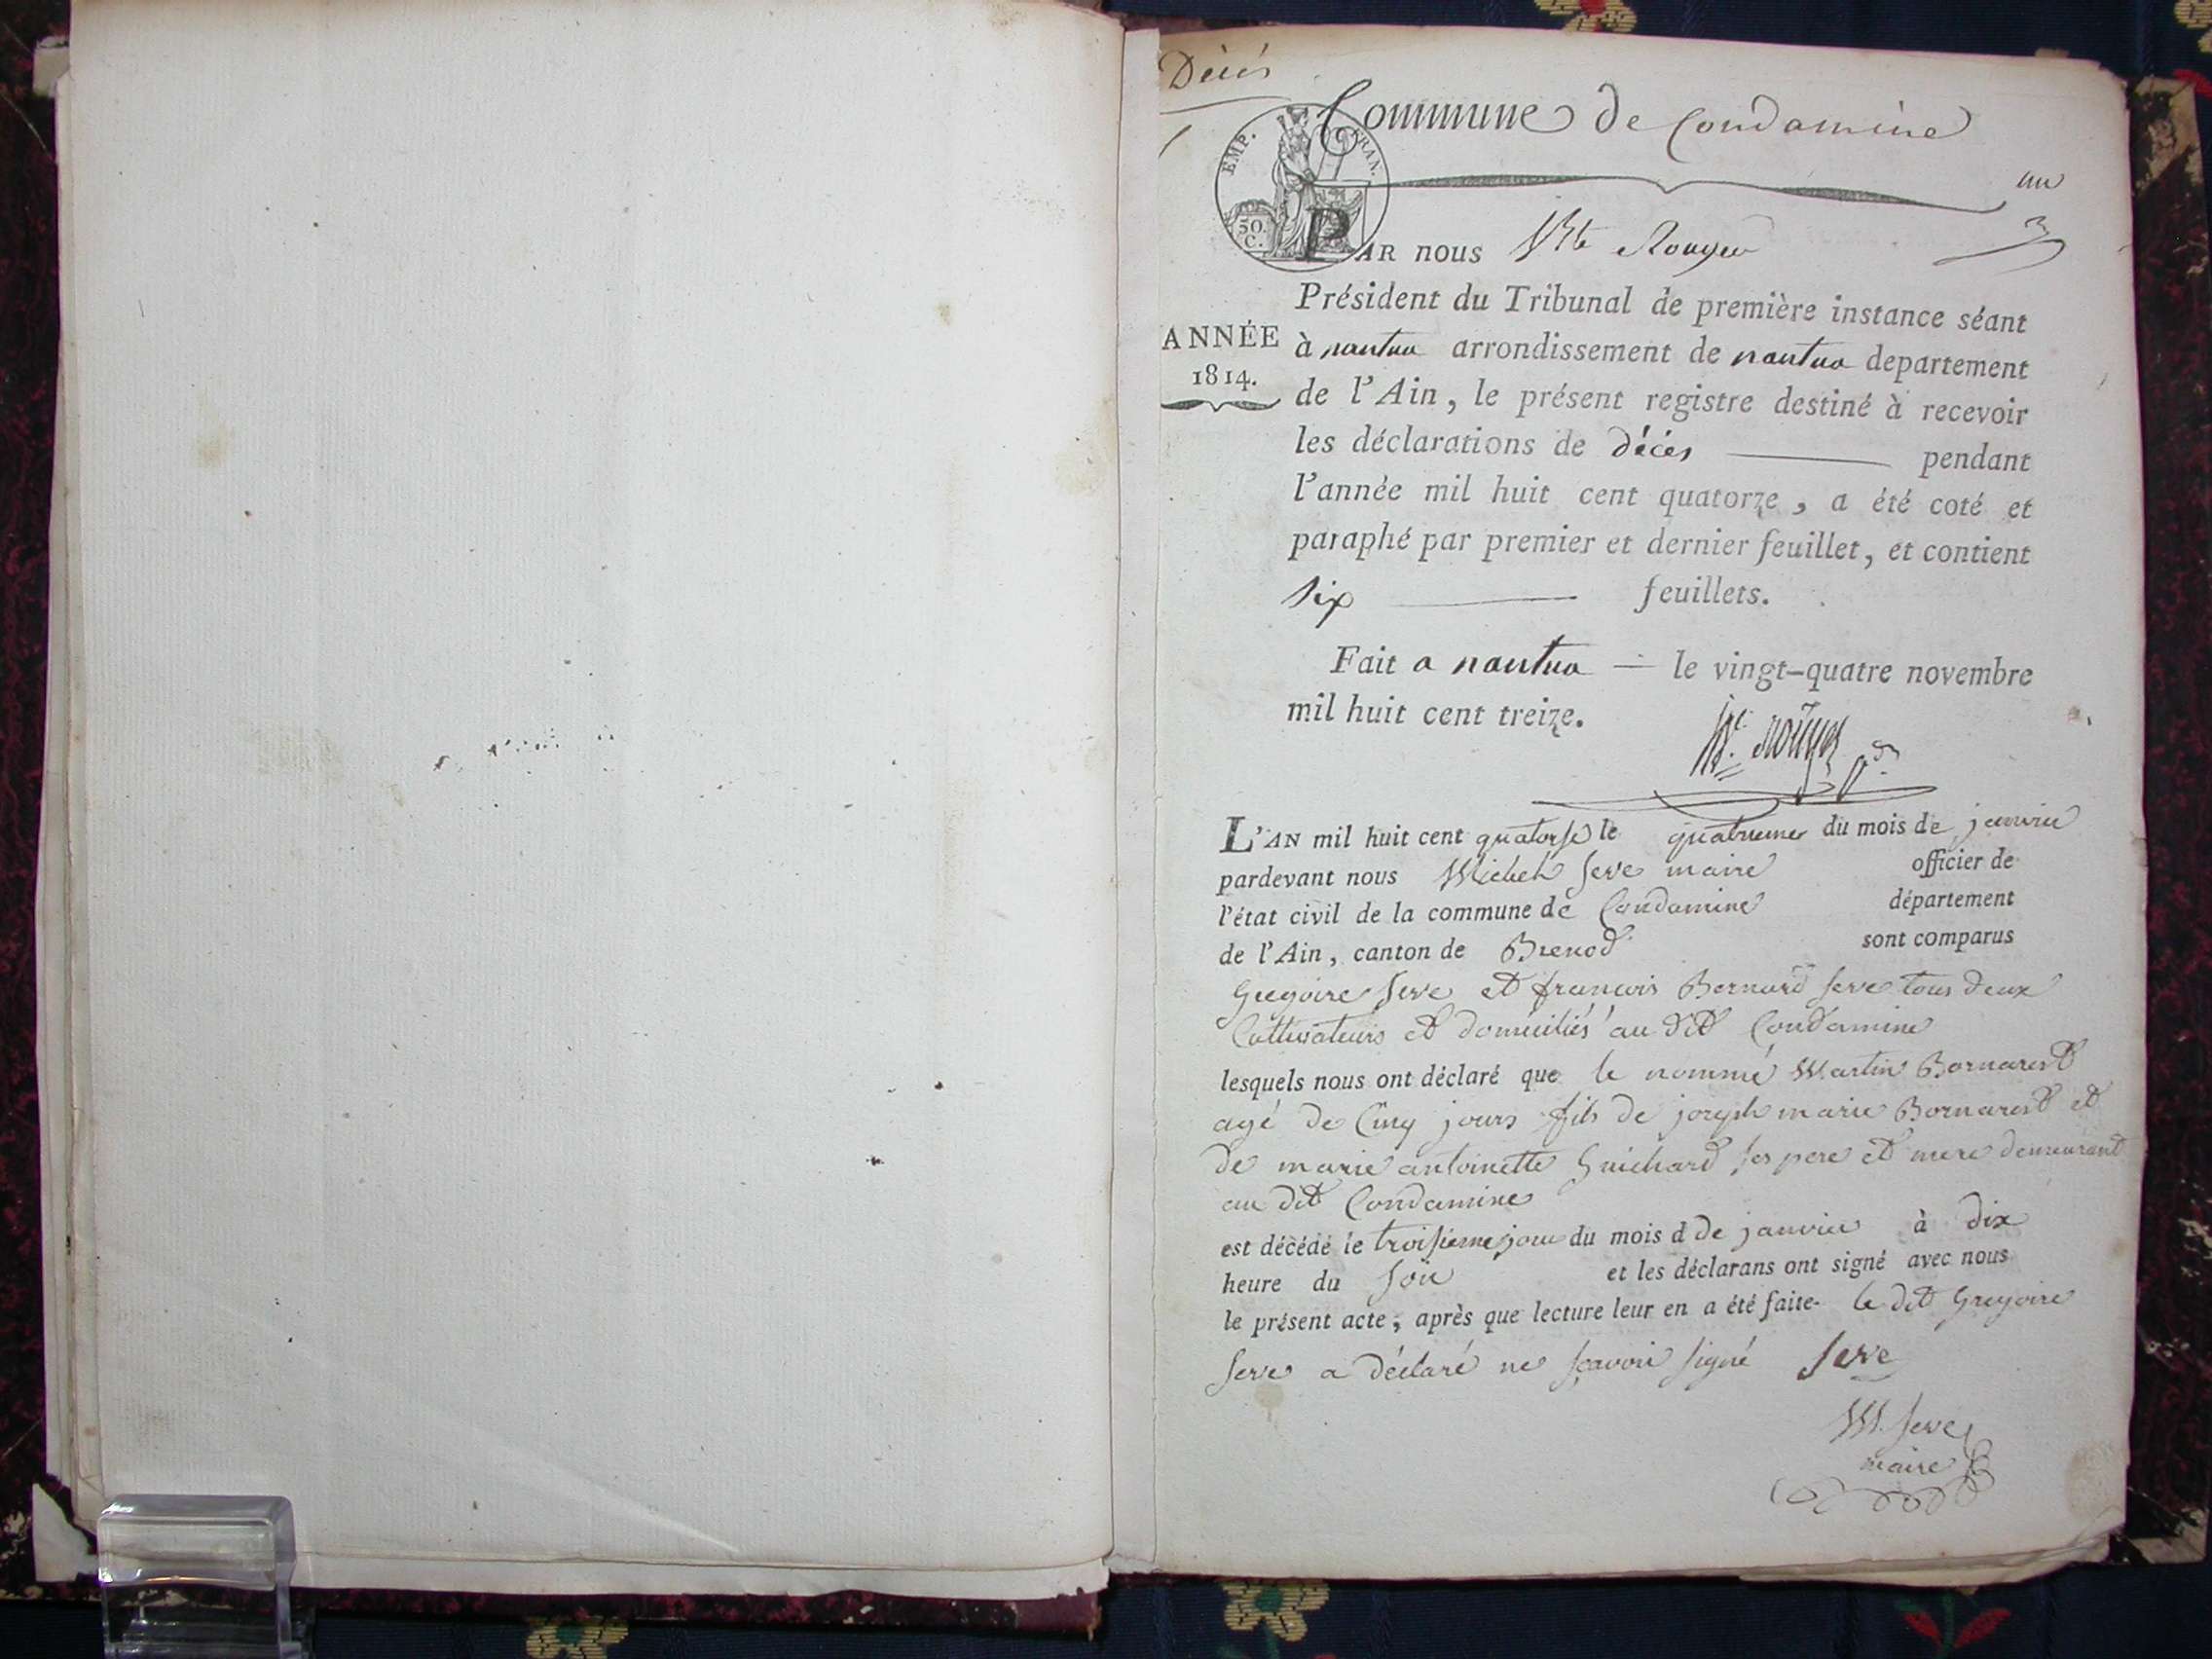 Décès
Commune de Condamine
EMP. FRAN.
50.
C.
un
PAR nous Rouyer
Président du Tribunal de première instance séant
ANNÉE
1814.
à nantua arrondissement de nantua departement
de l'Ain, le présent registre destiné à recevoir
les déclarations de décès pendant
l'année mil huit cent quatorze, a été coté et
paraphé par premier et dernier feuillet, et contient
six feuillets.
Fait a nantua le vingt-quatre novembre
mil huit cent treize.
Rouyer
L'AN mil huit cent quatorse le quatrieme du mois de janvier
pardevant nous Michel Seve maire officier de
l'état civil de la commune de Condamine département
de l'Ain, canton de Brenod sont comparus
Gregoire Seve et francois Bernard Seve tous deux
Cultivateurs et domiciliés au dit Condamine
lesquels nous ont déclaré que le nommé Martin Bornarest
agé de Cinq jours fils de joseph marie Bornarest et
de marie antoinette Guichard ses pere et mere demeurant
au dit Condamine
est décédé le troisieme jour du mois d de janvier à dix
heure du soir et les déclarans ont signé avec nous
le présent acte, après que lecture leur en a été faite. le dit Gregoire
Seve a déclaré ne sçavoir signé Seve
M. Seve
maire